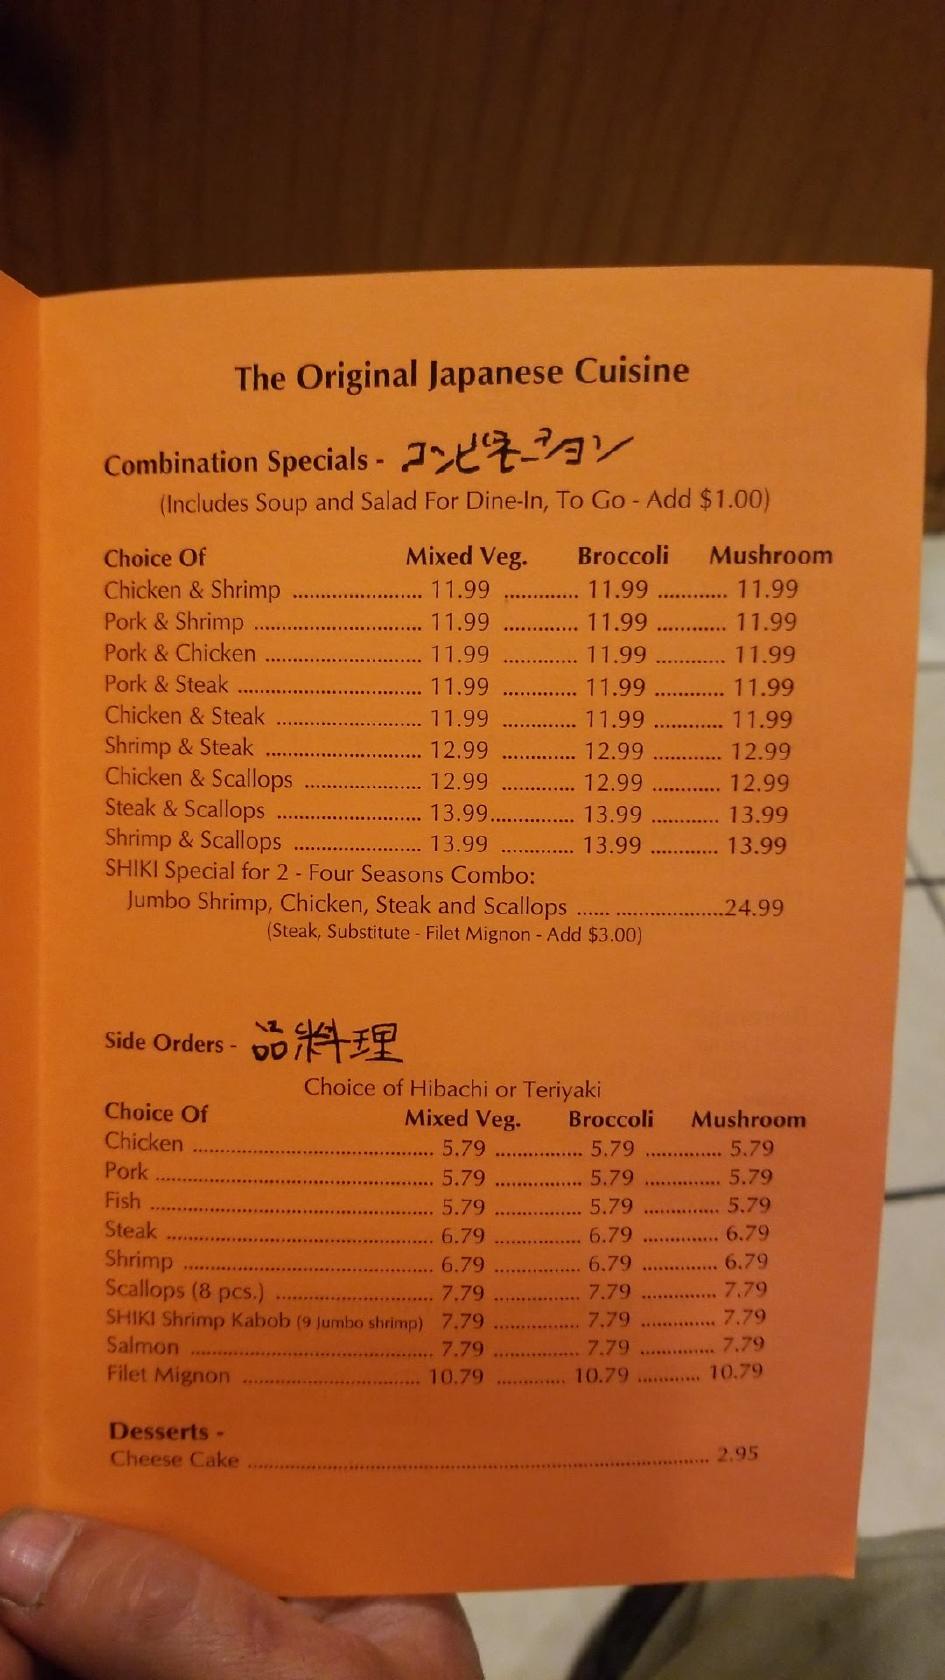 The Original Japanese Cuisine
Combination Specials - コンビネーション
(Includes Soup and Salad For Dine-In, To Go - Add $1.00)
Choice Of Mixed Veg. Broccoli Mushroom
Chicken & Shrimp ........................ 11.99 ............. 11.99 ............ 11.99
Pork & Shrimp ............................... 11.99 ............. 11.99 ............ 11.99
Pork & Chicken ............................. 11.99 ............. 11.99 ............ 11.99
Pork & Steak .................................. 11.99 ............. 11.99 ............ 11.99
Chicken & Steak ........................... 11.99 ............. 11.99 ............ 11.99
Shrimp & Steak ............................. 12.99 ............. 12.99 ............ 12.99
Chicken & Scallops ...................... 12.99 ............. 12.99 ............ 12.99
Steak & Scallops ........................... 13.99............... 13.99 ............ 13.99
Shrimp & Scallops ........................ 13.99 ............. 13.99 ............ 13.99
SHIKI Special for 2 - Four Seasons Combo:
Jumbo Shrimp, Chicken, Steak and Scallops ...... ....................24.99
(Steak, Substitute - Filet Mignon - Add $3.00)
Side Orders - 品料理
Choice of Hibachi or Teriyaki
Choice Of Mixed Veg. Broccoli Mushroom
Chicken ............................................. 5.79 ................ 5.79 .............. 5.79
Pork ................................................... 5.79 ................ 5.79 .............. 5.79
Fish .................................................... 5.79 ................ 5.79 .............. 5.79
Steak .................................................. 6.79 ................ 6.79 .............. 6.79
Shrimp ............................................... 6.79 ................ 6.79 .............. 6.79
Scallops (8 pcs.) ............................. 7.79 ................ 7.79 .............. 7.79
SHIKI Shrimp Kabob (9 Jumbo shrimp) 7.79 ................ 7.79 .............. 7.79
Salmon .............................................. 7.79 ................ 7.79 .............. 7.79
Filet Mignon ................................. 10.79 ............. 10.79 ............ 10.79
Desserts -
Cheese Cake ........................................................................................ 2.95